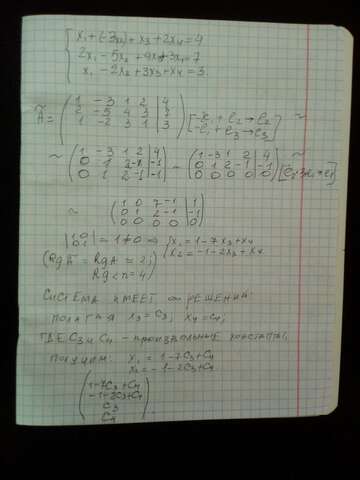 x₁ + (-3x₂) + x₃ + 2x₄ = 4
2x₁ - 5x₂ + 4x₃ + 3x₄ = 7
x₁ - 2x₂ + 3x₃ + x₄ = 3
Ã = ( 1 -3 1 2 | 4
2 -5 4 3 | 7
1 -2 3 1 | 3 ) ~
~ ( 1 -3 1 2 | 4
0 1 2 -1 | -1
0 1 2 -1 | -1 ) ~ ( 1 -3 1 2 | 4
0 1 2 -1 | -1
0 0 0 0 | 0 ) ~
~ ( 1 0 7 -1 | 1
0 1 2 -1 | -1
0 0 0 0 | 0 )
| 1 0
0 1 | = 1 ≠ 0 ⇒ { x₁ = 1 - 7x₃ + x₄
x₂ = -1 - 2x₃ + x₄
(RgÃ = RgA = 2;
Rg < n = 4)
СИСТЕМА ИМЕЕТ ∞ РЕШЕНИЙ
ПОЛАГАЯ x₃ = C₃; x₄ = C₄;
ГДЕ C₃ и C₄ - ПРОИЗВОЛЬНЫЕ КОНСТАНТЫ,
ПОЛУЧИМ: x₁ = 1 - 7C₃ + C₄
x₂ = -1 - 2C₃ + C₄
( 1 - 7C₃ + C₄
-1 - 2C₃ + C₄
C₃
C₄ )